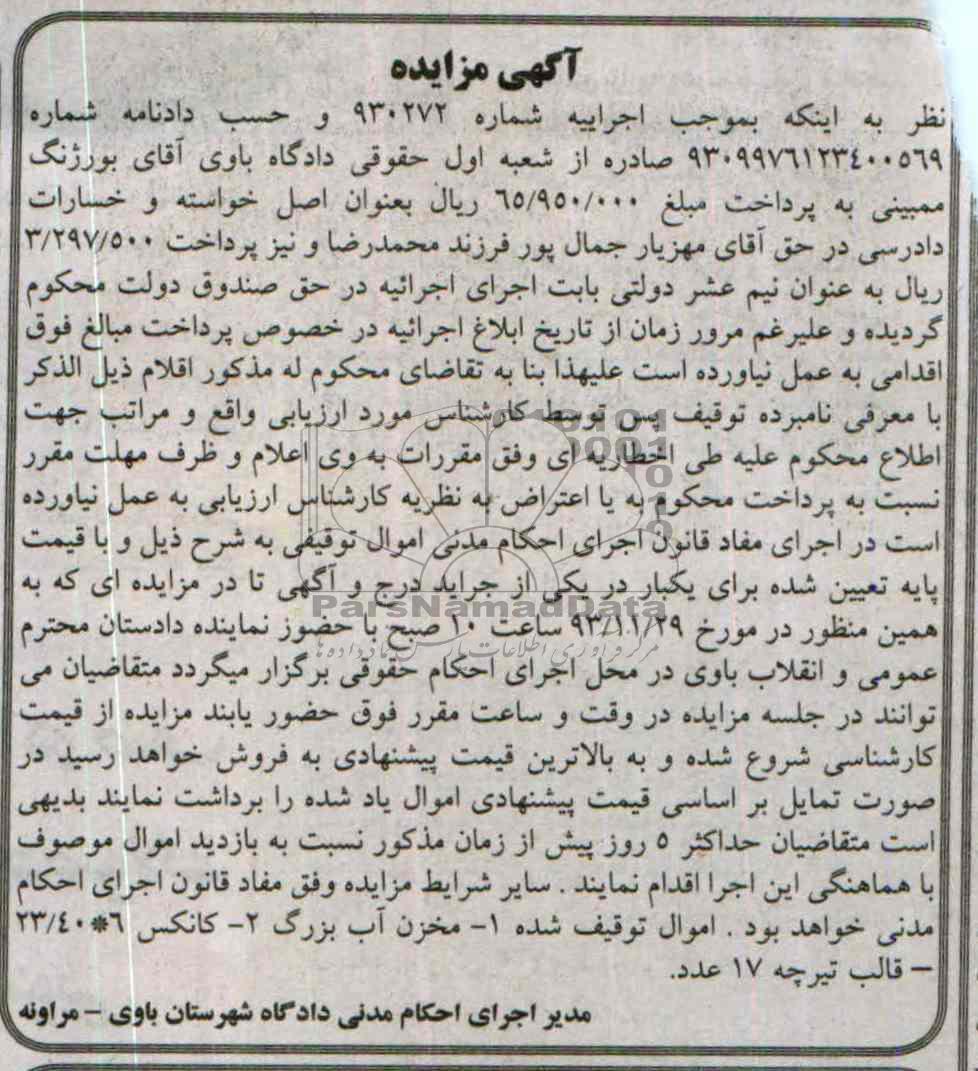 آگهی مزایده
نظر به اینکه بموجب اجراییه شماره ۹۳۰۲۷۲ و حسب دادنامه شماره
۹۳۰۹۹۷۶۱۲۳٤۰۰٥٦۹ صادره از شعبه اول حقوقی دادگاه باوی آقای بورژنگ
ممبینی به پرداخت مبلغ ٦٥/۹٥۰/۰۰۰ ریال بعنوان اصل خواسته و خسارات
دادرسی در حق آقای مهزیار جمال پور فرزند محمدرضا و نیز پرداخت ۳/۲۹۷/٥۰۰
ریال به عنوان نیم عشر دولتی بابت اجرای اجرائیه در حق صندوق دولت محکوم
گردیده و علیرغم مرور زمان از تاریخ ابلاغ اجرائیه در خصوص پرداخت مبالغ فوق
اقدامی به عمل نیاورده است علیهذا بنا به تقاضای محکوم له مذکور اقلام ذیل الذکر
با معرفی نامبرده توقیف پس توسط کارشناس مورد ارزیابی واقع و مراتب جهت
اطلاع محکوم علیه طی اخطاریه ای وفق مقررات به وی اعلام و ظرف مهلت مقرر
نسبت به پرداخت محکوم به یا اعتراض به نظریه کارشناس ارزیابی به عمل نیاورده
است در اجرای مفاد قانون اجرای احکام مدنی اموال توقیفی به شرح ذیل و با قیمت
پایه تعیین شده برای یکبار در یکی از جراید درج و آگهی تا در مزایده ای که به
ParsNamadData
همین منظور در مورخ ۹۳/۱۱/۲۹ ساعت ۱۰ صبح با حضوز نماینده دادستان محترم
عمومی و انقلاب باوی در محل اجرای احکام حقوقی برگزار میگردد متقاضیان می
توانند در جلسه مزایده در وقت و ساعت مقرر فوق حضور یابند مزایده از قیمت
کارشناسی شروع شده و به بالاترین قیمت پیشنهادی به فروش خواهد رسید در
صورت تمایل بر اساسی قیمت پیشنهادی اموال یاد شده را برداشت نمایند بدیهی
است متقاضیان حداکثر ٥ روز پیش از زمان مذکور نسبت به بازدید اموال موصوف
با هماهنگی این اجرا اقدام نمایند . سایر شرایط مزایده وفق مفاد قانون اجرای احکام
مدنی خواهد بود . اموال توقیف شده ۱- مخزن آب بزرگ ۲- کانکس ٦*۲۳/٤۰
– قالب تیرچه ۱۷ عدد.
مدیر اجرای احکام مدنی دادگاه شهرستان باوی – مراونه